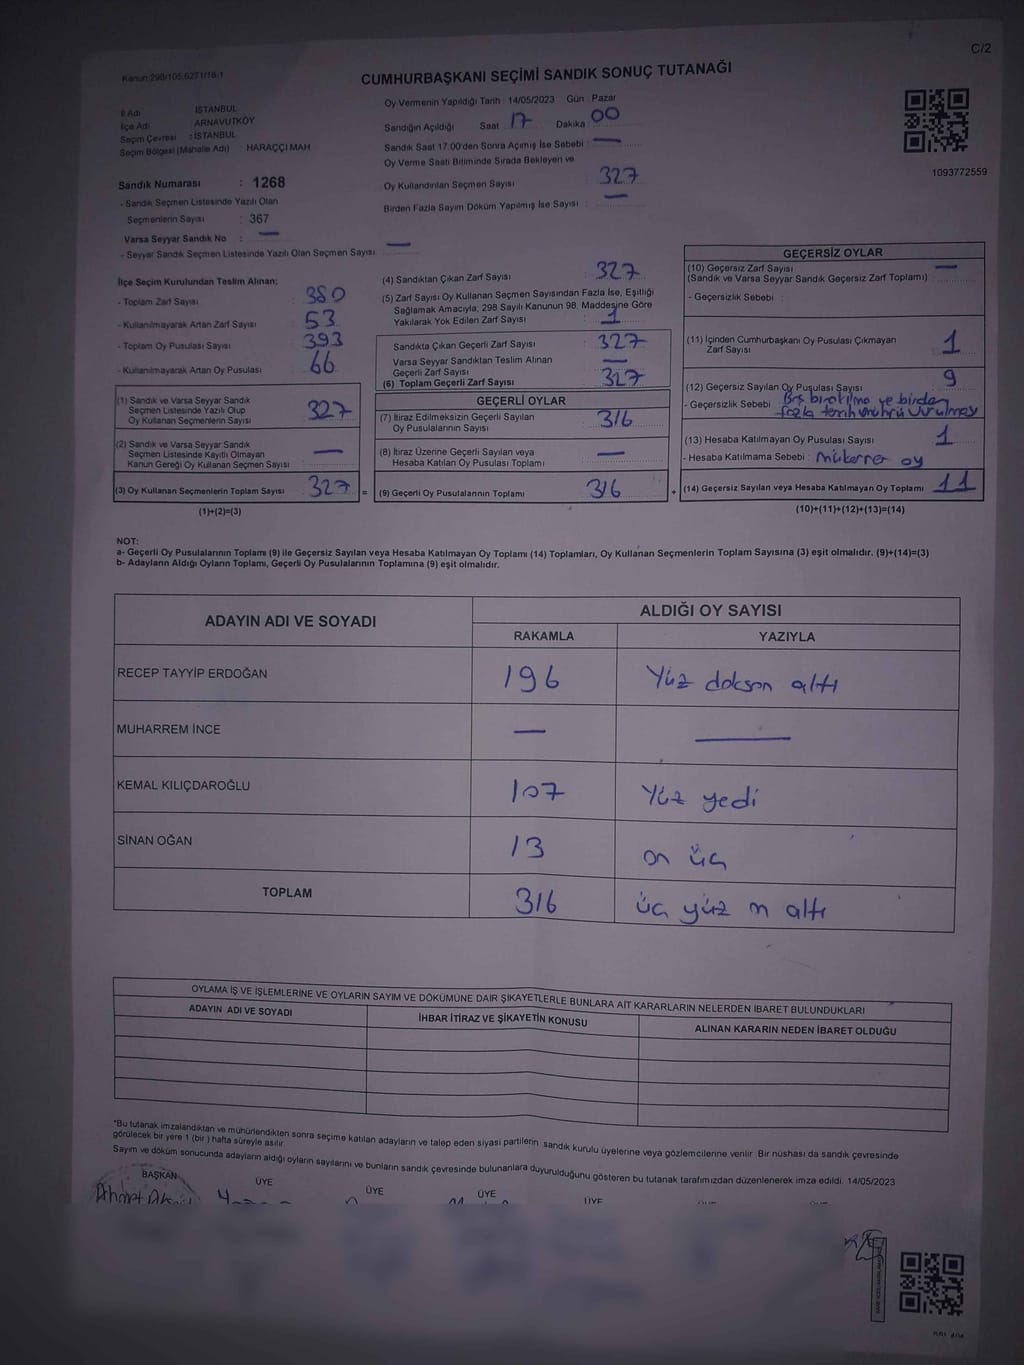 C/2
Kanun:298/105.6271/18-1
CUMHURBAŞKANI SEÇİMİ SANDIK SONUÇ TUTANAĞI
İl Adı : İSTANBUL
İlçe Adı : ARNAVUTKÖY
Seçim Çevresi : İSTANBUL
Seçim Bölgesi (Mahalle Adı) : HARAÇÇI MAH
Oy Vermenin Yapıldığı Tarih : 14/05/2023 Gün : Pazar
Sandığın Açıldığı Saat : 17 Dakika : 00
Sandık Saat 17:00'den Sonra Açımış İse Sebebi : —
Oy Verme Saati Bitiminde Sırada Bekleyen ve
Oy Kullandırılan Seçmen Sayısı : 327
Birden Fazla Sayım Döküm Yapılmış İse Sayısı : —
1093772559
Sandık Numarası : 1268
- Sandık Seçmen Listesinde Yazılı Olan
Seçmenlerin Sayısı : 367
Varsa Seyyar Sandık No : —
- Seyyar Sandık Seçmen Listesinde Yazılı Olan Seçmen Sayısı : —
İlçe Seçim Kurulundan Teslim Alınan;
- Toplam Zarf Sayısı : 380
- Kullanılmayarak Artan Zarf Sayısı : 53
- Toplam Oy Pusulası Sayısı : 393
- Kullanılmayarak Artan Oy Pusulası : 66
(1) Sandık ve Varsa Seyyar Sandık
Seçmen Listesinde Yazılı Olup
Oy Kullanan Seçmenlerin Sayısı : 327
(2) Sandık ve Varsa Seyyar Sandık
Seçmen Listesinde Kayıtlı Olmayan
Kanun Gereği Oy Kullanan Seçmen Sayısı : —
(3) Oy Kullanan Seçmenlerin Toplam Sayısı : 327 =
(1)+(2)=(3)
(4) Sandıktan Çıkan Zarf Sayısı : 327
(5) Zarf Sayısı Oy Kullanan Seçmen Sayısından Fazla İse, Eşitliği
Sağlamak Amacıyla, 298 Sayılı Kanunun 98. Maddesine Göre
Yakılarak Yok Edilen Zarf Sayısı : 1
Sandıkta Çıkan Geçerli Zarf Sayısı : 327
Varsa Seyyar Sandıktan Teslim Alınan
Geçerli Zarf Sayısı : —
(6) Toplam Geçerli Zarf Sayısı : 327
GEÇERLİ OYLAR
(7) İtiraz Edilmeksizin Geçerli Sayılan
Oy Pusulasının Sayısı : 316
(8) İtiraz Üzerine Geçerli Sayılan veya
Hesaba Katılan Oy Pusulası Toplamı : —
(9) Geçerli Oy Pusulalarının Toplamı : 316 +
GEÇERSİZ OYLAR
(10) Geçersiz Zarf Sayısı : —
(Sandık ve Varsa Seyyar Sandık Geçersiz Zarf Toplamı)
- Geçersizlik Sebebi :
(11) İçinden Cumhurbaşkanı Oy Pusulası Çıkmayan
Zarf Sayısı : 1
(12) Geçersiz Sayılan Oy Pusulası Sayısı : 9
- Geçersizlik Sebebi : Boş bırakılma ve birden
fazla tercih mührü vurulması
(13) Hesaba Katılmayan Oy Pusulası Sayısı : 1
- Hesaba Katılmama Sebebi : mükerrer oy
(14) Geçersiz Sayılan veya Hesaba Katılmayan Oy Toplamı : 11
(10)+(11)+(12)+(13)=(14)
NOT:
a- Geçerli Oy Pusulalarının Toplamı (9) ile Geçersiz Sayılan veya Hesaba Katılmayan Oy Toplamı (14) Toplamları, Oy Kullanan Seçmenlerin Toplam Sayısına (3) eşit olmalıdır. (9)+(14)=(3)
b- Adayların Aldığı Oyların Toplamı, Geçerli Oy Pusulalarının Toplamına (9) eşit olmalıdır.
ADAYIN ADI VE SOYADI
ALDIĞI OY SAYISI
RAKAMLA YAZIYLA
RECEP TAYYİP ERDOĞAN 196 Yüz doksan altı
MUHARREM İNCE — —
KEMAL KILIÇDAROĞLU 107 Yüz yedi
SİNAN OĞAN 13 on üç
TOPLAM 316 üç yüz on altı
OYLAMA İŞ VE İŞLEMLERİNE VE OYLARIN SAYIM VE DÖKÜMÜNE DAİR ŞİKAYETLERLE BUNLARA AİT KARARLARIN NELERDEN İBARET BULUNDUKLARI
ADAYIN ADI VE SOYADI İHBAR İTİRAZ VE ŞİKAYETİN KONUSU ALINAN KARARIN NEDEN İBARET OLDUĞU
*Bu tutanak imzalandıktan ve mühürlendikten sonra seçime katılan adayların ve talep eden siyasi partilerin sandık kurulu üyelerine veya gözlemcilerine verilir. Bir nüshası da sandık çevresinde
görülecek bir yere 1 (bir ) hafta süreyle asılır.
Sayım ve döküm sonucunda adayların aldığı oyların sayılarını ve bunların sandık çevresinde bulunanlara duyurulduğunu gösteren bu tutanak tarafımızdan düzenlenerek imza edildi. 14/05/2023
BAŞKAN ÜYE ÜYE ÜYE ÜYE